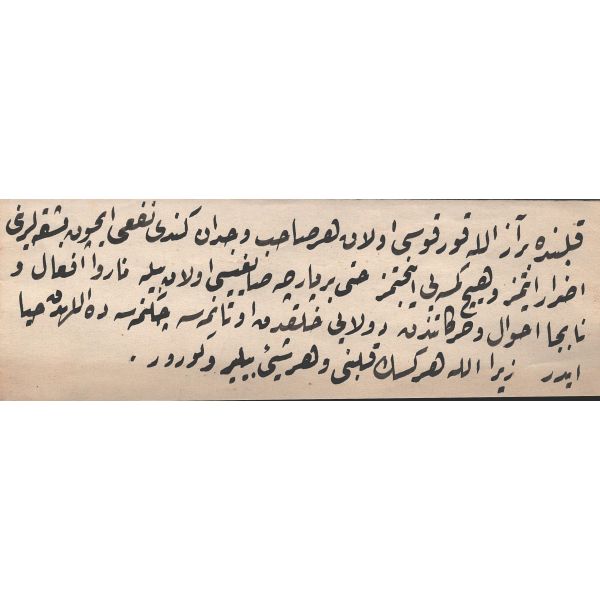 قلبنده بر آز الله قورقوسی اولان هر صاحب وجدان کندی نفعی ایچون بشقه لرینی
اضرار ایتمز و هیچ کمسه یی اینجتمز حتی بر پارچه صایغیسی اولان بیله ناروا افعال و
نابجا احوال و حرکاتندن دولایی خلقدن اوتانمرسه چکنمرسه ده اللهدن حیا
ایدر زیرا الله هرکسك قلبنی و هر شیئی بیلیر و کورور .